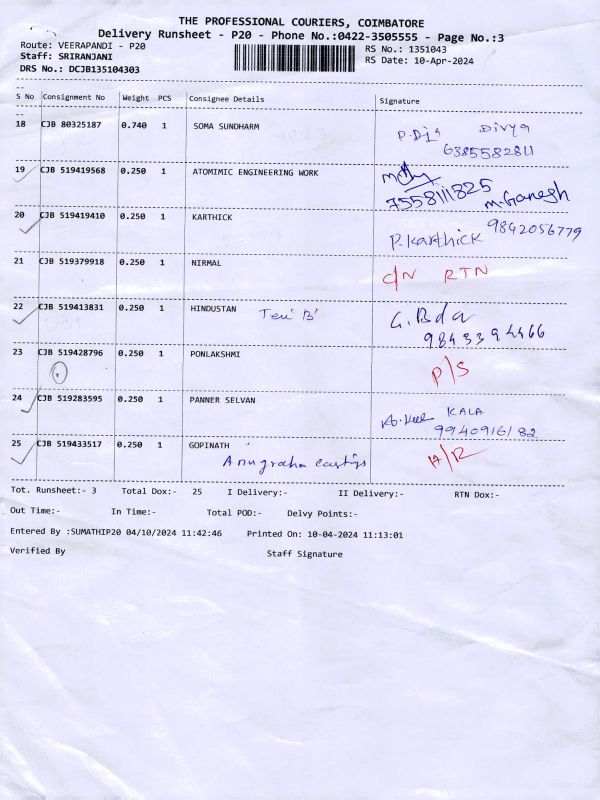 THE PROFESSIONAL COURIERS, COIMBATORE
Delivery Runsheet - P20 - Phone No.:0422-3505555 - Page No.:3
Route: VEERAPANDI - P20
RS No.: 1351043
Staff: SRIRANJANI
RS Date: 10-Apr-2024
DRS No.: DCJB135104303
S No Consignment No Weight PCS Consignee Details Signature
18 CJB 80325187 0.740 1 SOMA SUNDHARM Divya
6385582811
19 CJB 519419568 0.250 1 ATOMIMIC ENGINEERING WORK
7558111825 M.Ganesh
20 CJB 519419410 0.250 1 KARTHICK 9842056779
P.Karthick
21 CJB 519379918 0.250 1 NIRMAL C/N RTN
22 CJB 519413831 0.250 1 HINDUSTAN
9843394466
23 CJB 519428796 0.250 1 PONLAKSHMI P/S
24 CJB 519283595 0.250 1 PANNER SELVAN KALA
9940916182
25 CJB 519433517 0.250 1 GOPINATH
Anugraha
Tot. Runsheet:- 3 Total Dox:- 25 I Delivery:- II Delivery:- RTN Dox:-
Out Time:- In Time:- Total POD:- Delvy Points:-
Entered By :SUMATHIP20 04/10/2024 11:42:46 Printed On: 10-04-2024 11:13:01
Verified By Staff Signature